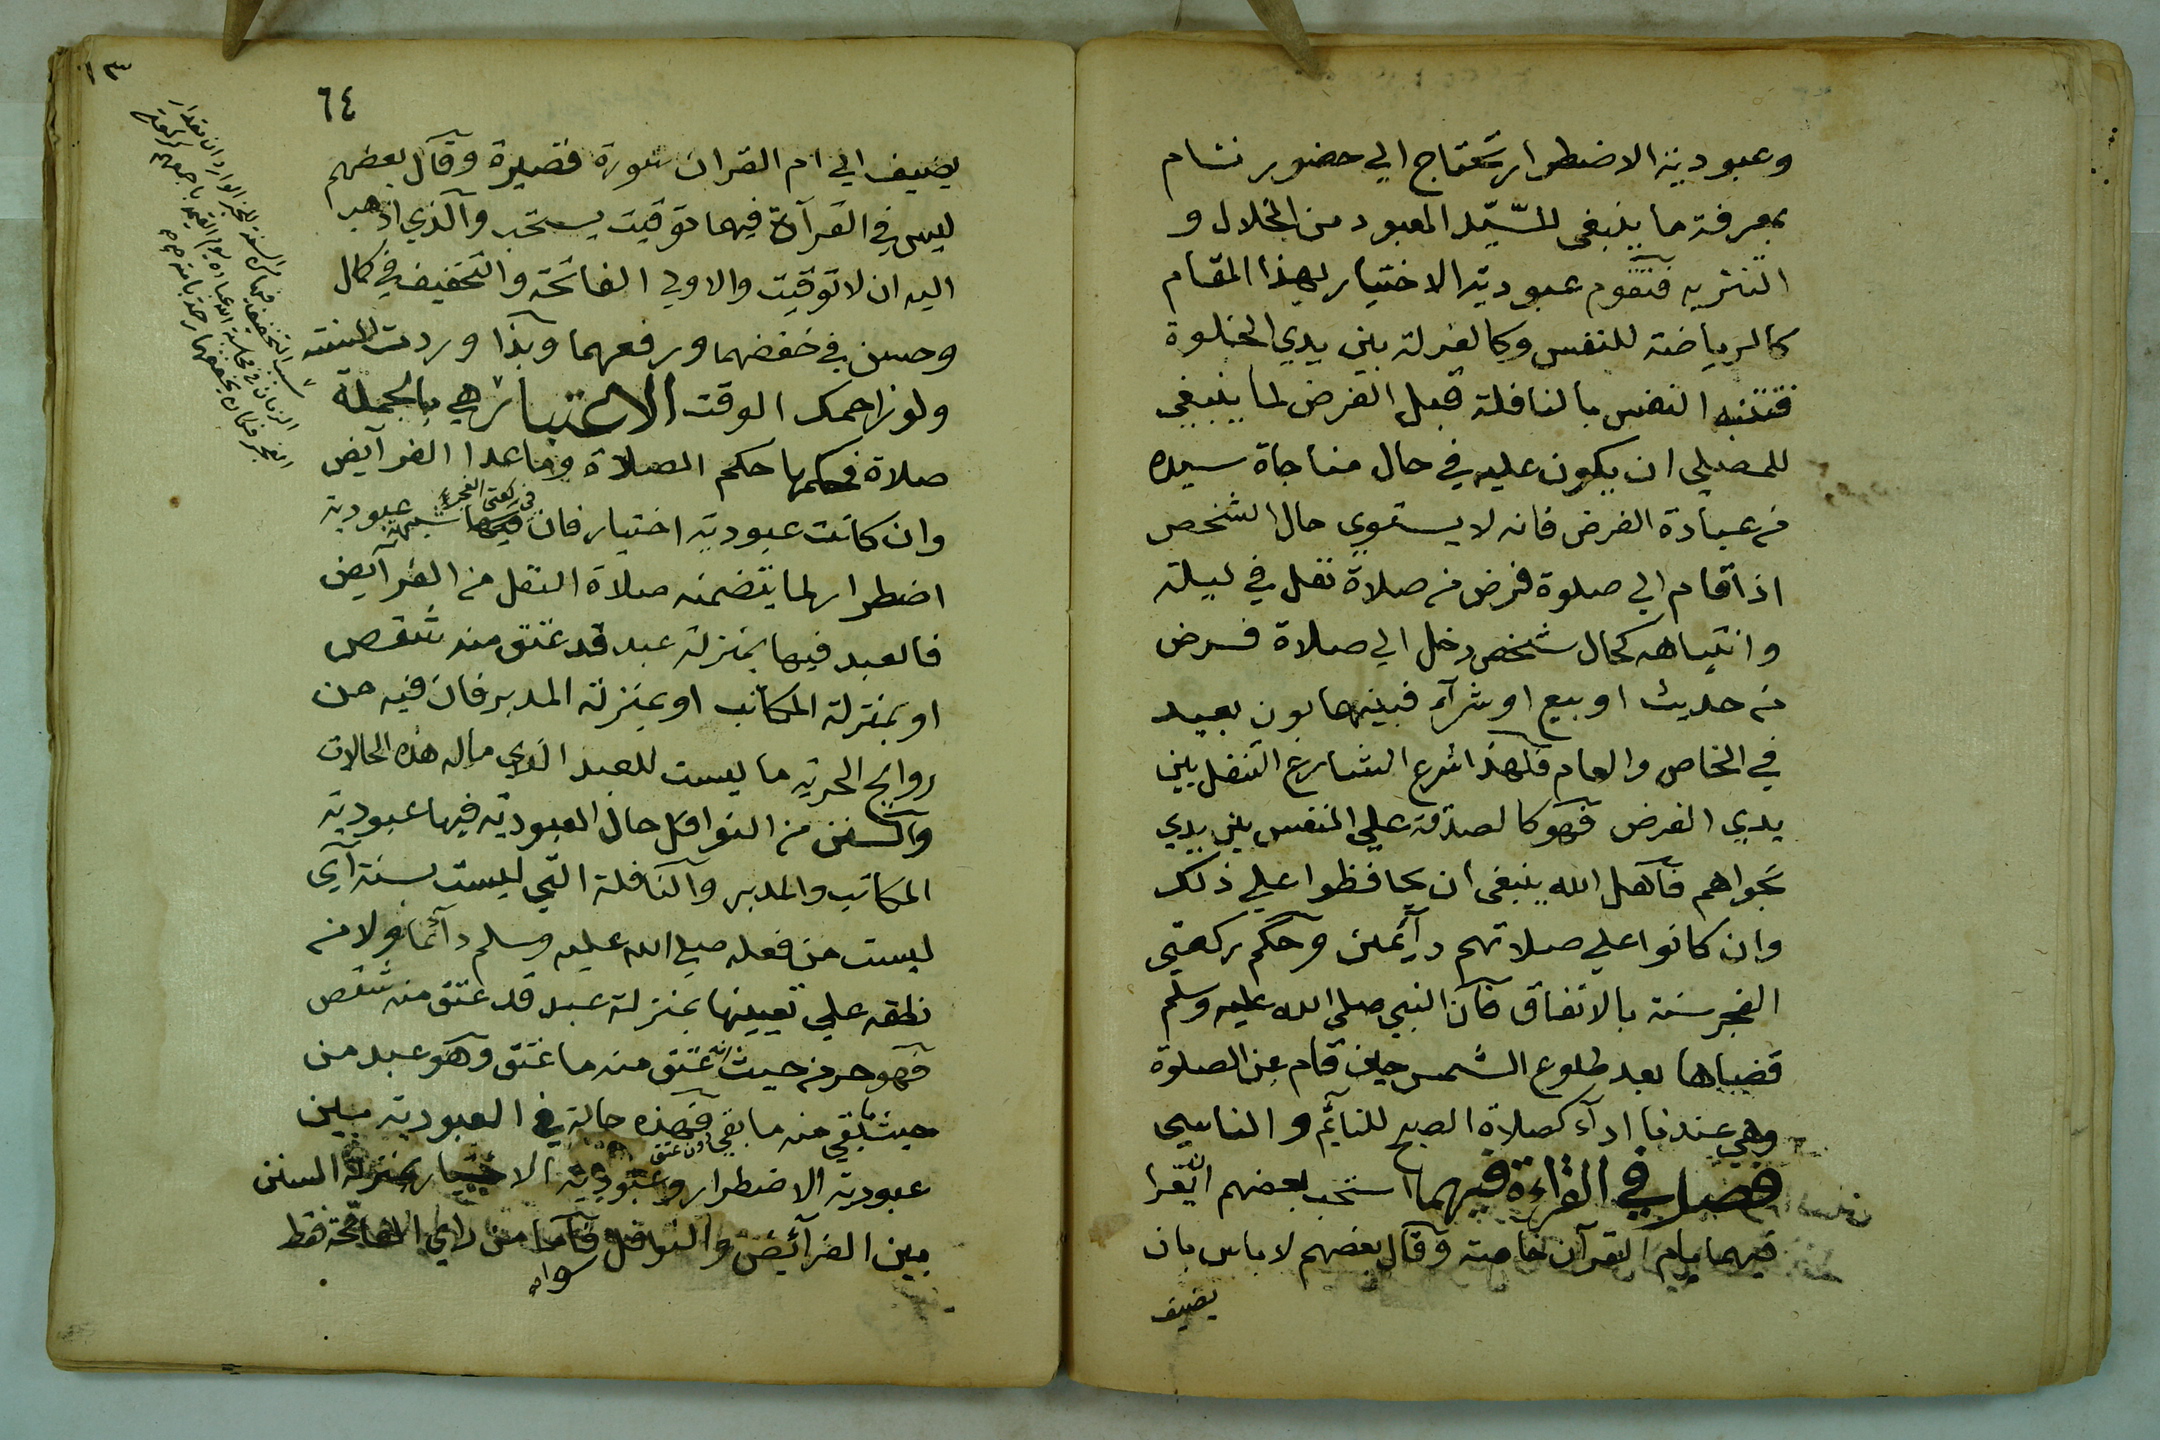 وعبودية الاضطرار تحتاج الي حضور تام
بمعرفة ما ينبغي للسّيد المعبود من الجلال و
التنزيه فتقوم عبودية الاختيار لهذا المقام
كالرياضة للنفس وكالعزلة بين يدي الخلوة
فتنبه النفس بالنافلة قبل الفرض لما ينبغي
للمصلي ان يكون عليه في حال مناجاة سيده
من عبادة الفرض فانه لا يستوي حال الشخص
اذا قام الي صلوة فرض من صلاة نفل في ليلة
وانتباهه كحال شخص دخل الي صلاة فرض
من حديث او بيع او شرآء فبينهما بون بعيد
في الخاص والعام فلهذا شرع الشارع التنفل بين
يدي الفرض فهو كالصدقة علي النفس بين يدي
نجواهم فآهل الله ينبغي ان يحافظوا علي ذلك
وان كانوا علي صلاتهم دآئمين وحكم ركعتي
الفجر سنة بالاتفاق فان النبي صلي الله عليه وسلم
قضاها بعد طلوع الشمس حين قام عن الصلوة
وهي عندنا ادآء كصلاة الصبح للنايم والناسي
فصل في القراءة فيهما استحب بعضهم ان يقرا
فيهما بام القرآن خاصة وقال بعضهم لا باس بان
يضيف
٦٤
١٣
يضيف الي ام القران سورة قصيرة وقال بعضهم
ليس في القرآة فيهما توقيت يستحب والذي اذهب
اليه ان لا توقيت والاولي الفاتحة والتخفيف في كمال
وحسن في خفضهما ورفعهما وبذا وردت السنه
ولو زاحمك الوقت الاعتبار هي بالجملة
صلاة فحكمها حكم الصلاة وما عدا الفرآيض
وان كانت عبودية اختيار فان فيها شبهة عبودية
في ركعتي الفجر
اضطرار لما يتضمنه صلاة النفل من الفرآيض
فالعبد فيها بمنزلة عبد قد عتق منه شقص
او بمنزلة المكاتب او بمنزلة المدبر فان فيه من
روايح الحرية ما ليست للعبد الذي ماله هذه الحالات
والسنن من النوافل حال العبودية فيها عبودية
المكاتب والمدبر والنافلة التي ليست بسنة اي
ليست من فعله صلي الله عليه وسلم دآئما ولا من
نطقه علي تعيينها بمنزلة عبد قد عتق منه شقص
فهو حر من حيث انه عتق منه ما عتق وهو عبد من
حيث ما بقي منه ما بقي فهذه حالة في العبودية بين
دون عتق
عبودية الاضطرار وعبودية الاختيار بمنزلة السنن
بين الفرآئض والنوافل فاما من راي الفاتحة فقط
سواه